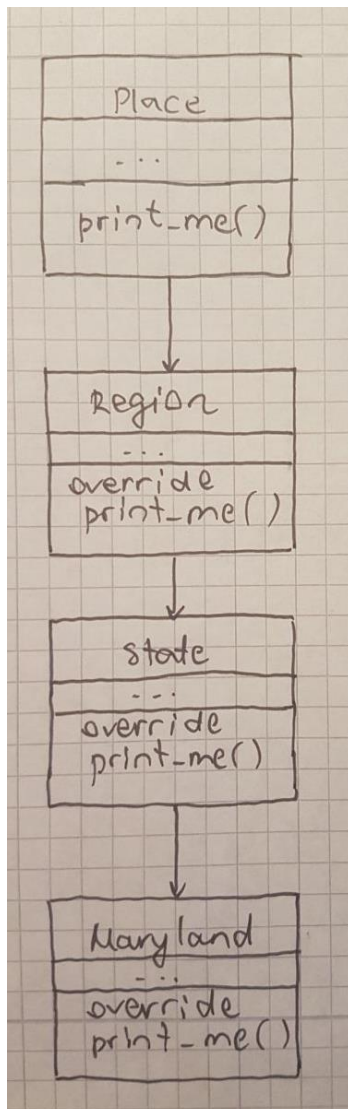 Place
...
print_me()
Region
...
override
print_me()
state
...
override
print_me()
Maryland
...
override
print_me()